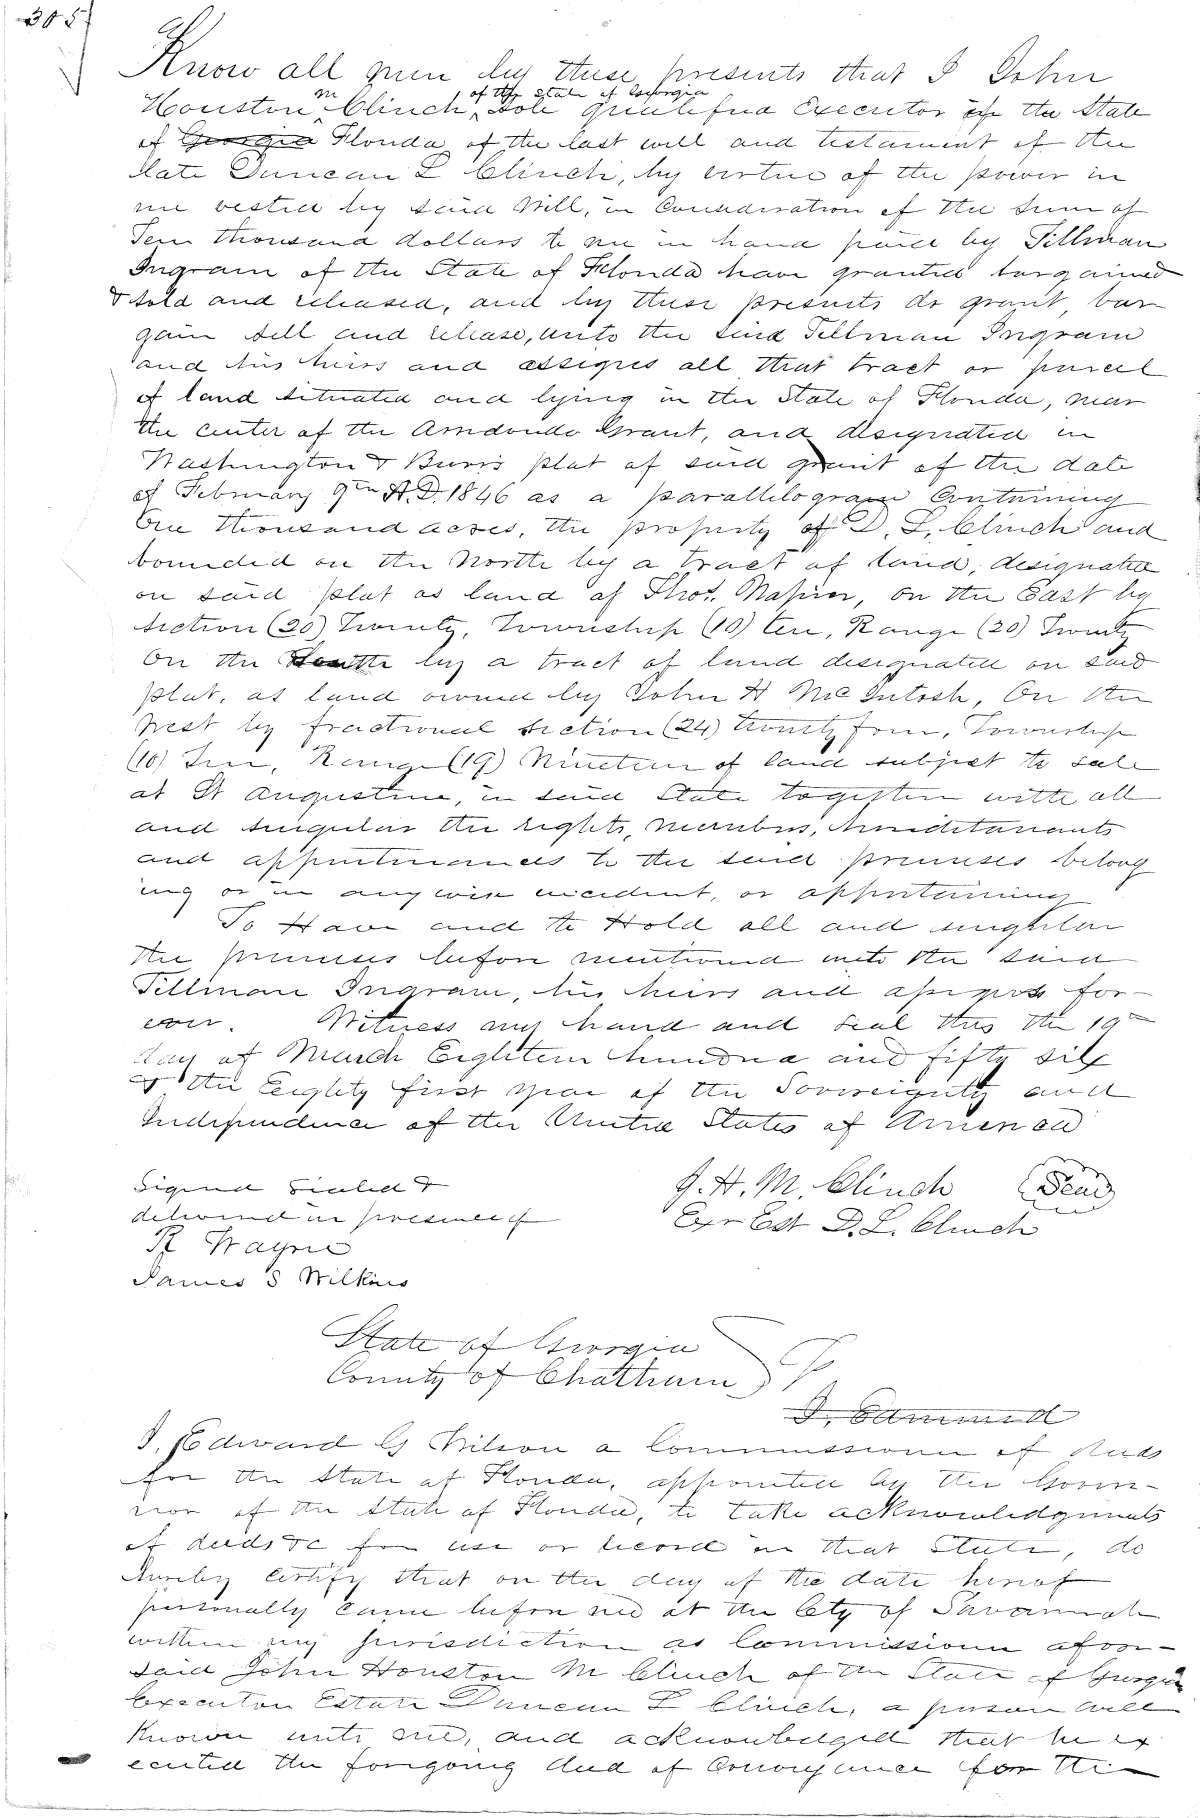 305
Know all men by these presents that I John
of the State of Georgia
Houston M Clinch, Sole qualified Executor in the State
of Georgia Florida of the last will and testament of the
late Duncan L Clinch, by virtue of the power in
me vested by said Will, in Consideration of the sum of
Ten thousand dollars to me in hand paid by Tillman
Ingram of the State of Florida have granted bargained
& sold and released, and by these presents do grant, bar
gain sell and release, unto the said Tillman Ingram
and his heirs and assigns all that tract or parcel
of land situated and lying in the State of Florida, near
the center of the Arredondo Grant, and designated in
Washington & Burr's plat of said grant of the date
of February 9th A.D. 1846 as a parallelogram Containing
One thousand acres, the property of D. L. Clinch and
bounded on the North by a tract of land, designated
on said plat as land of Thos. Napier, on the East by
Section (20) Twenty, Township (10) ten, Range (20) Twenty
On the South by a tract of land designated on said
plat, as land owned by John H McIntosh, On the
West by fractional section (24) twenty four, Township
(10) Ten, Range (19) Nineteen of land subject to sale
at St Augustine, in said State together with all
and singular the rights, members, hereditaments
and appurtenances to the said premises belong
ing or in any wise incident, or appertaining
To Have and to Hold all and singular
the premises before mentioned unto the said
Tillman Ingram, his heirs and assigns for-
ever. Witness my hand and seal this the 19th
day of March Eighteen hundred and fifty six
& the Eighty first year of the Sovereignty and
Independence of the United States of America
Signed Sealed &
delivered in presence of
R Wayne
James S Wilkins
J. H. M. Clinch Seal
Exr Est D. L. Clinch
State of Georgia
County of Chatham
I, Edmund
I, Edward G Wilson a Commissioner of deeds
for the State of Florida, appointed by the Gover-
nor of the State of Florida, to take acknowledgments
of deeds &c for use or record in that State, do
hereby certify that on the day of the date hereof
personally came before me at the City of Savannah
within my jurisdiction as Commissioner afore-
said John Houston M Clinch of the State of Georgia
Executor Estate Duncan L Clinch, a person well
known unto me, and acknowledged that he ex
ecuted the foregoing deed of Conveyance for the